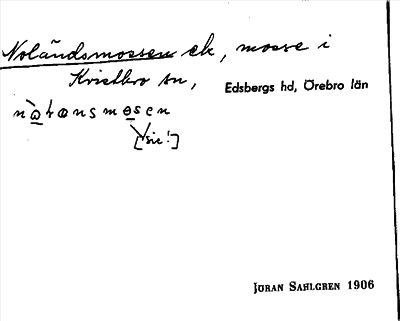 Nolåndsmossen ek, mosse i
Kvistbro sn,
Edsbergs hd, Örebro län
[sic!]
JÖRAN SAHLGREN 1906